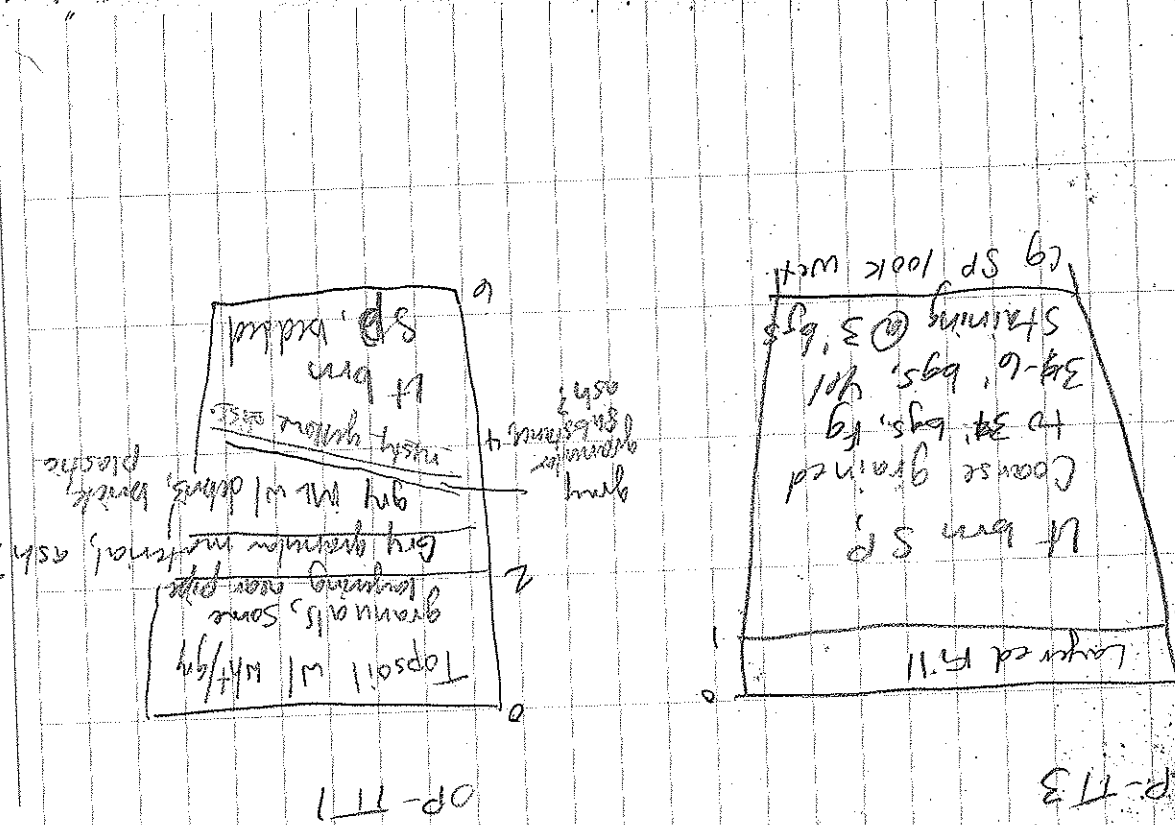 P-TT3
0
Layered Fill
1
Lt brn SP,
Coarse grained
to 3' bgs, fg
3-6' bgs, Yel
Staining @ 3' bgs
cg SP look wet
OP-TT1
0
Topsoil w/ wht/gry
granuals, some
layering near pipe
2
Gry granular material, ash
gry w/ debris, brick,
plastic
rusty yellow
gray
granular
substance
ash?
Lt brn
SP, bedded
6